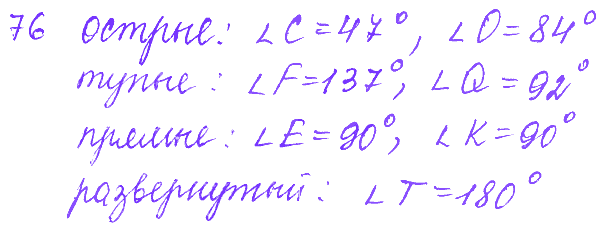 76 острые: ∠C = 47°, ∠O = 84°
тупые: ∠F = 137°, ∠Q = 92°
прямые: ∠E = 90°, ∠K = 90°
развернутый: ∠T = 180°